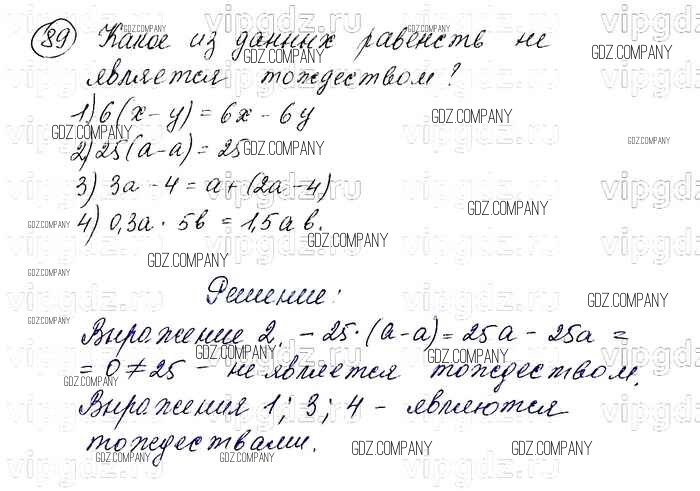 89 Какое из данных равенств не
является тождеством?
1) 6(x-y) = 6x - 6y
2) 25(a-a) = 25
3) 3a - 4 = a + (2a - 4)
4) 0,3a · 5b = 1,5ab.
Решение:
Выражение 2. - 25·(a-a) = 25a - 25a =
= 0 ≠ 25 - не является тождеством.
Выражения 1; 3; 4 - являются
тождествами.
GDZ.COMPANY
vipgdz.ru